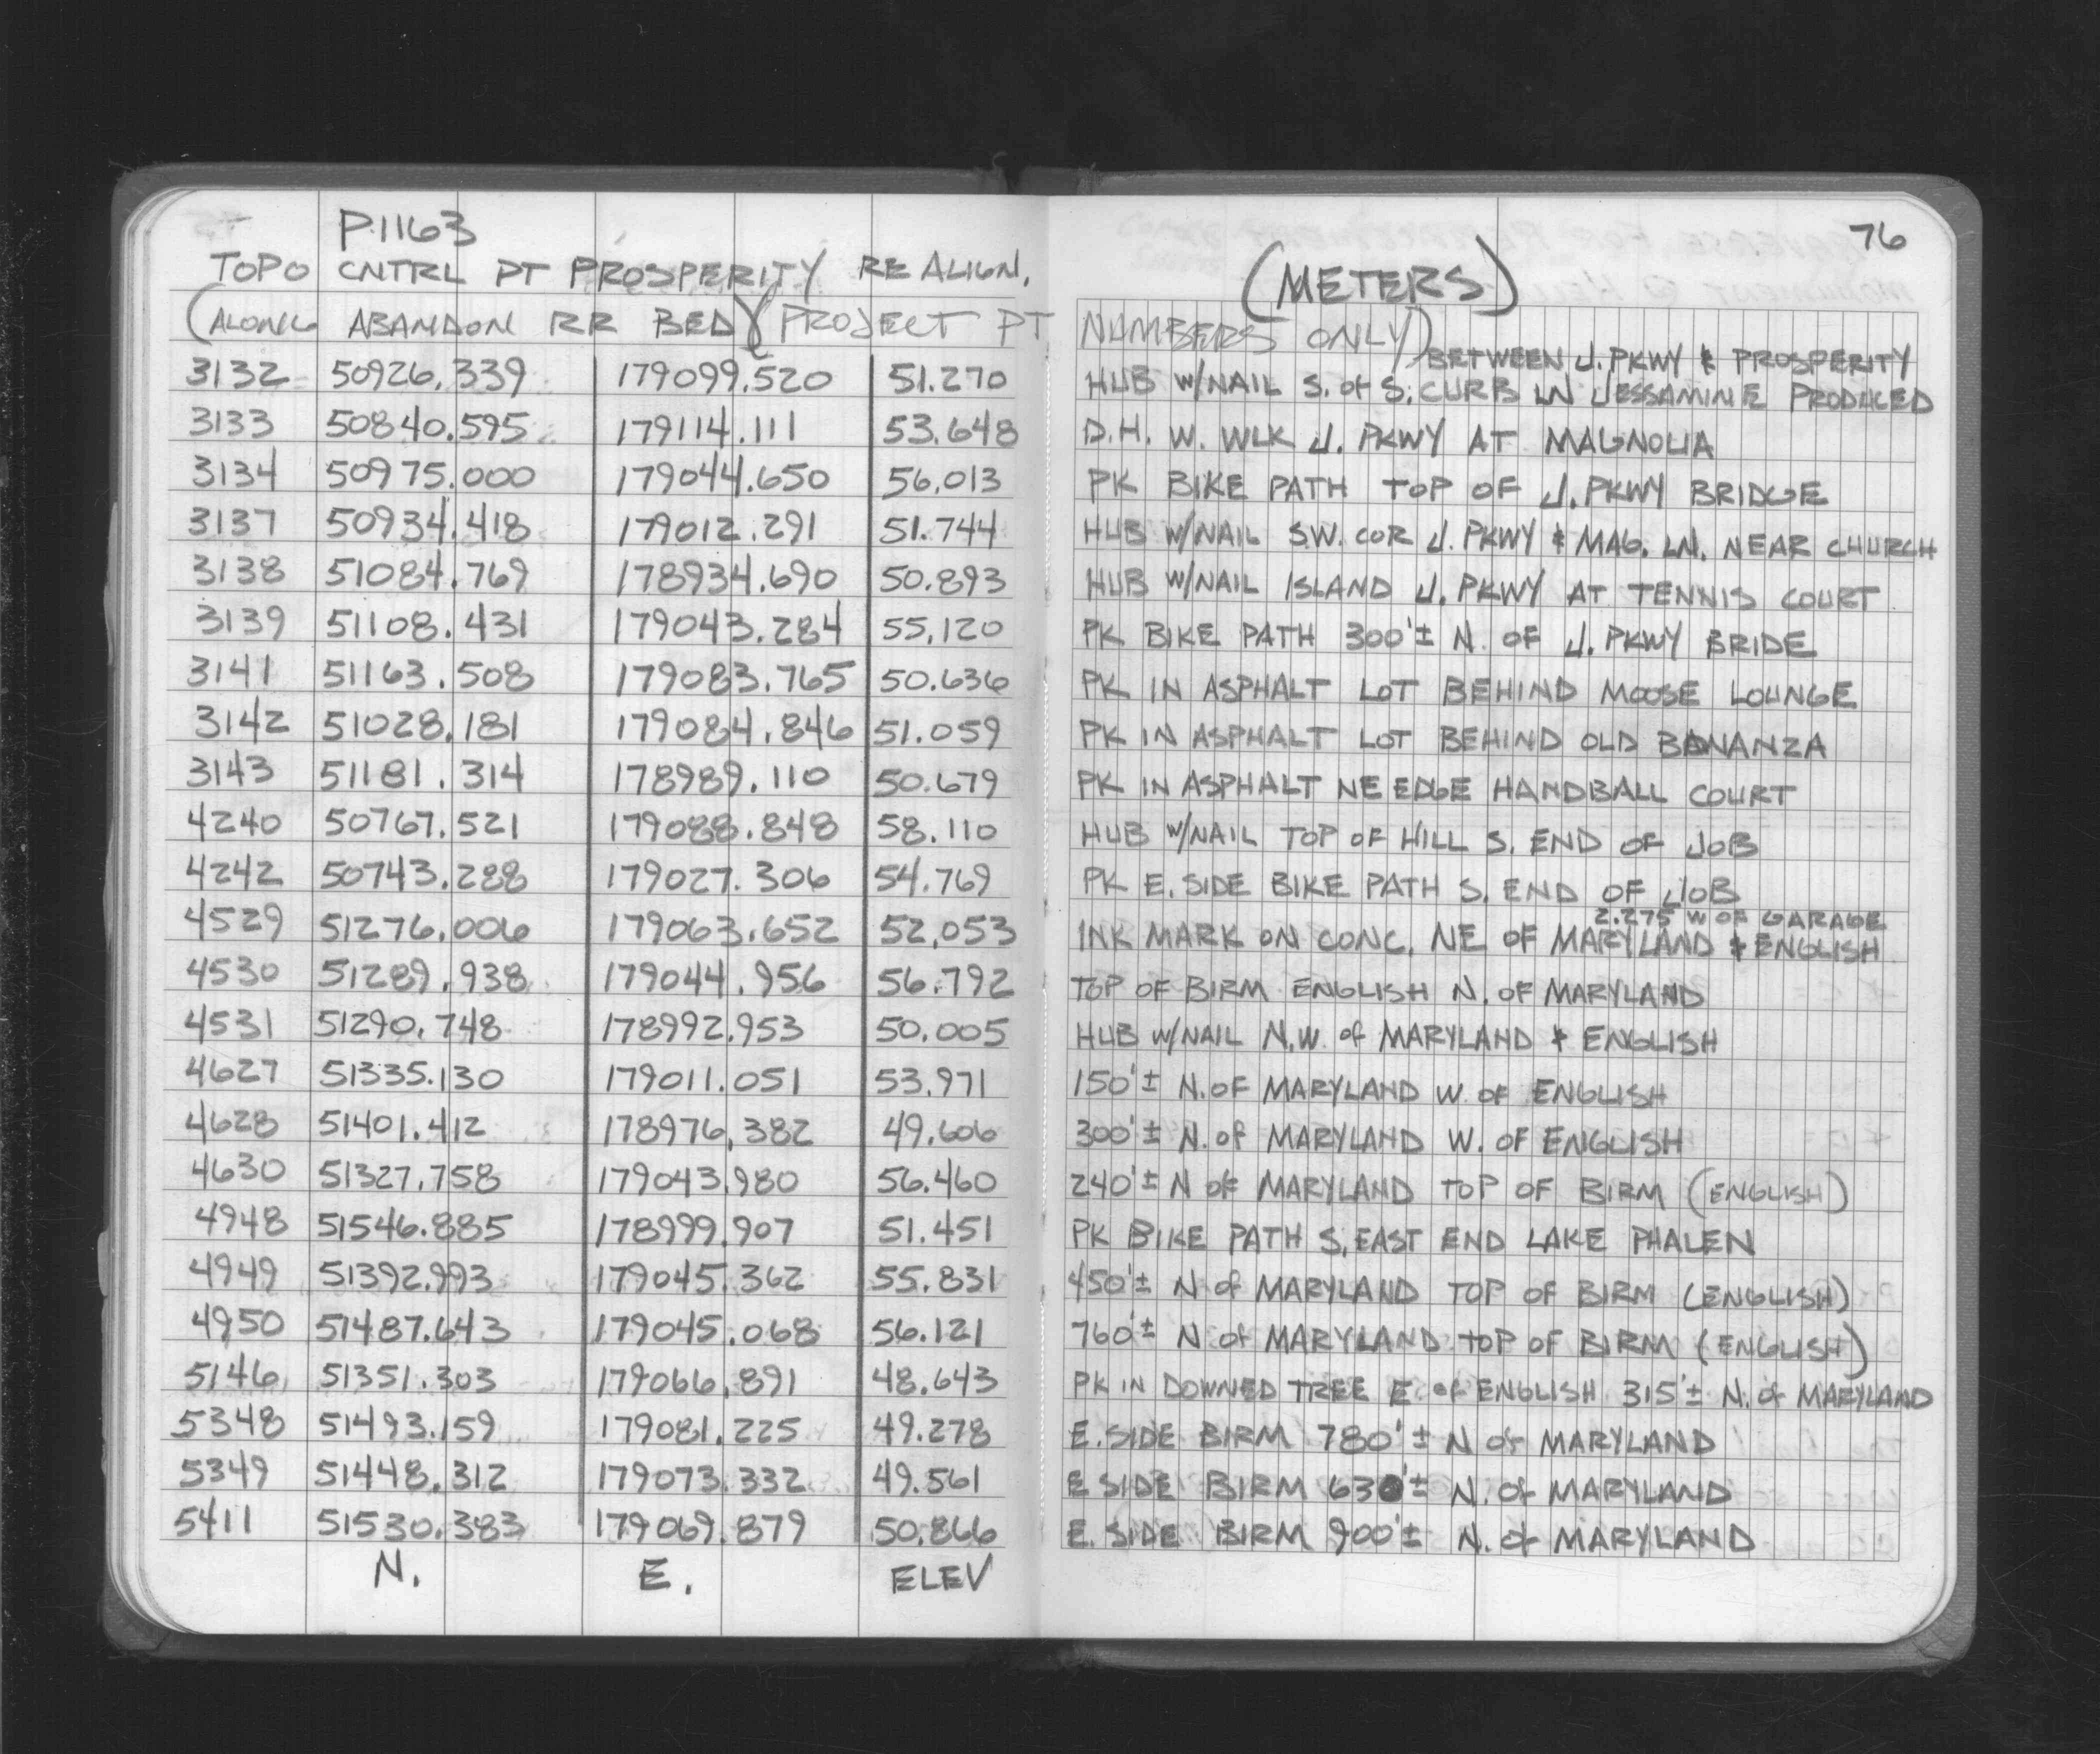 P.1163
76
TOPO CNTRL PT PROSPERITY RE ALIGN. (METERS)
(ALONG ABANDON RR BED) (PROJECT PT NUMBERS ONLY)
BETWEEN J. PKWY & PROSPERITY
3132 50926.339 179099.520 51.270 HUB W/NAIL S. of S. CURB LN JESSAMINE PRODUCED
3133 50840.595 179114.111 53.648 D.H. W. WLK J. PKWY AT MAGNOLIA
3134 50975.000 179044.650 56.013 PK BIKE PATH TOP OF J. PKWY BRIDGE
3137 50934.418 179012.291 51.744 HUB W/NAIL S.W. COR J. PKWY & MAG. LN. NEAR CHURCH
3138 51084.769 178934.690 50.893 HUB W/NAIL ISLAND J. PKWY AT TENNIS COURT
3139 51108.431 179043.284 55.120 PK BIKE PATH 300'± N. OF J. PKWY BRIDE
3141 51163.508 179083.765 50.636 PK IN ASPHALT LOT BEHIND MOOSE LOUNGE
3142 51028.181 179084.846 51.059 PK IN ASPHALT LOT BEHIND OLD BONANZA
3143 51181.314 178989.110 50.679 PK IN ASPHALT NE EDGE HANDBALL COURT
4240 50767.521 179088.848 58.110 HUB W/NAIL TOP OF HILL S. END OF JOB
4242 50743.288 179027.306 54.769 PK E. SIDE BIKE PATH S. END OF JOB
2.275 W OF GARAGE
4529 51276.006 179063.652 52.053 INK MARK ON CONC. NE OF MARYLAND & ENGLISH
4530 51289.938 179044.956 56.792 TOP OF BIRM ENGLISH N. OF MARYLAND
4531 51290.748 178992.953 50.005 HUB W/NAIL N.W. of MARYLAND & ENGLISH
4627 51335.130 179011.051 53.971 150'± N. OF MARYLAND W. OF ENGLISH
4628 51401.412 178976.382 49.606 300'± N. of MARYLAND W. OF ENGLISH
4630 51327.758 179043.980 56.460 240'± N of MARYLAND TOP OF BIRM (ENGLISH)
4948 51546.885 178999.907 51.451 PK BIKE PATH S. EAST END LAKE PHALEN
4949 51392.993 179045.362 55.831 450'± N of MARYLAND TOP OF BIRM (ENGLISH)
4950 51487.643 179045.068 56.121 760'± N. of MARYLAND TOP OF BIRM (ENGLISH)
5146 51351.303 179066.891 48.643 PK IN DOWNED TREE E. of ENGLISH 315'± N. of MARYLAND
5348 51493.159 179081.225 49.278 E. SIDE BIRM 780'± N of MARYLAND
5349 51448.312 179073.332 49.561 E SIDE BIRM 630'± N. of MARYLAND
5411 51530.383 179069.879 50.866 E. SIDE BIRM 900'± N. of MARYLAND
N. E. ELEV